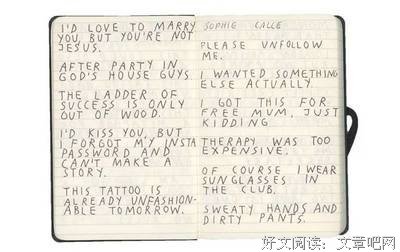 I'D LOVE TO MARRY
YOU, BUT YOU'RE NOT
JESUS.
AFTER PARTY IN
GOD'S HOUSE GUYS.
THE LADDER OF
SUCCESS IS ONLY
OUT OF WOOD.
I'D KISS YOU, BUT
I FORGOT MY INSTA
PASSWORD AND
CAN'T MAKE A
STORY.
THIS TATTOO IS
ALREADY UNFASHION-
ABLE TOMORROW.
SOPHIE CALLE
PLEASE UNFOLLOW
ME.
I WANTED SOMETHING
ELSE ACTUALLY.
I GOT THIS FOR
FREE MUM, JUST
KIDDING
THERAPY WAS TOO
EXPENSIVE.
OF COURSE I WEAR
SUNGLASSES IN
THE CLUB.
SWEATY HANDS AND
DIRTY PANTS.
好文阅读：文章吧网